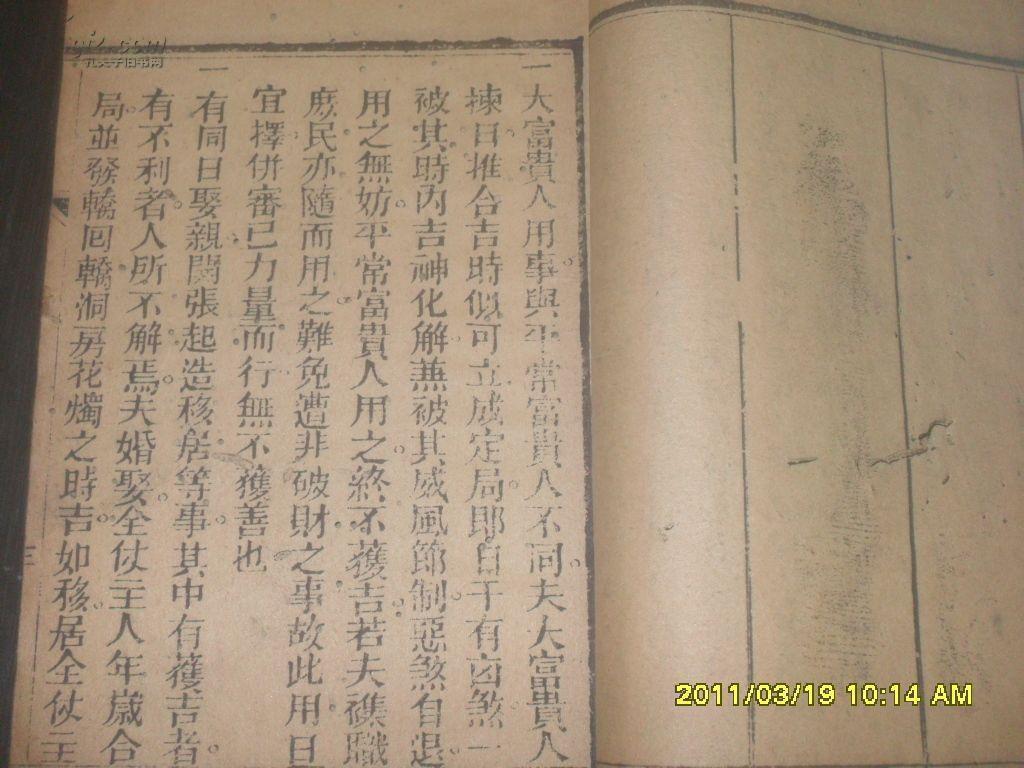 一大富貴人用事與平常富貴人不同夫大富貴人
揀日推合吉時似可立成定局即日干有凶煞一
被其時內吉神化解兼被其威風節制惡煞自退
用之無妨平常富貴人用之終不獲吉若夫樵職
庶民亦隨而用之難免遭非破財之事故此用日
宜擇併審己力量而行無不獲善也
一有同日娶親開張起造移居等事其中有獲吉者
有不利者人所不解焉夫婚娶全仗主人年歲合
局並發轎回轎洞房花燭之時吉如移居全仗主
三
孔夫子旧书网
2011/03/19 10:14 AM